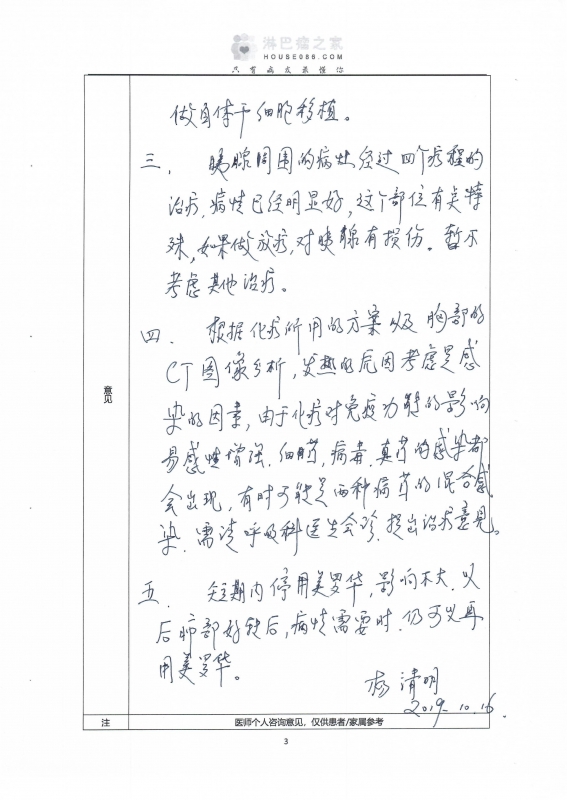 淋巴瘤之家
HOUSE086.COM
只有病友最懂你
做自体干细胞移植。
三、胰腺周围的病灶经过四个疗程的
治疗，病情已经明显好，这个部位有点特
殊，如果做放疗，对胰腺有损伤。暂不
考虑其他治疗。
四、根据化疗所用的方案以及胸部的
CT图像分析，发热的原因考虑是感
染的因素，由于化疗对免疫功能的影响
易感性增强．细菌，病毒．真菌的感染都
会出现，有时可能是两种病菌的混合感
染．需请呼吸科医生会诊．提出治疗意见。
意见
五、短期内停用美罗华，影响不大．以
后肺部好转后，病情需要时．仍可以再
用美罗华。
杨清明
2019.10.16.
注 医师个人咨询意见，仅供患者/家属参考
3